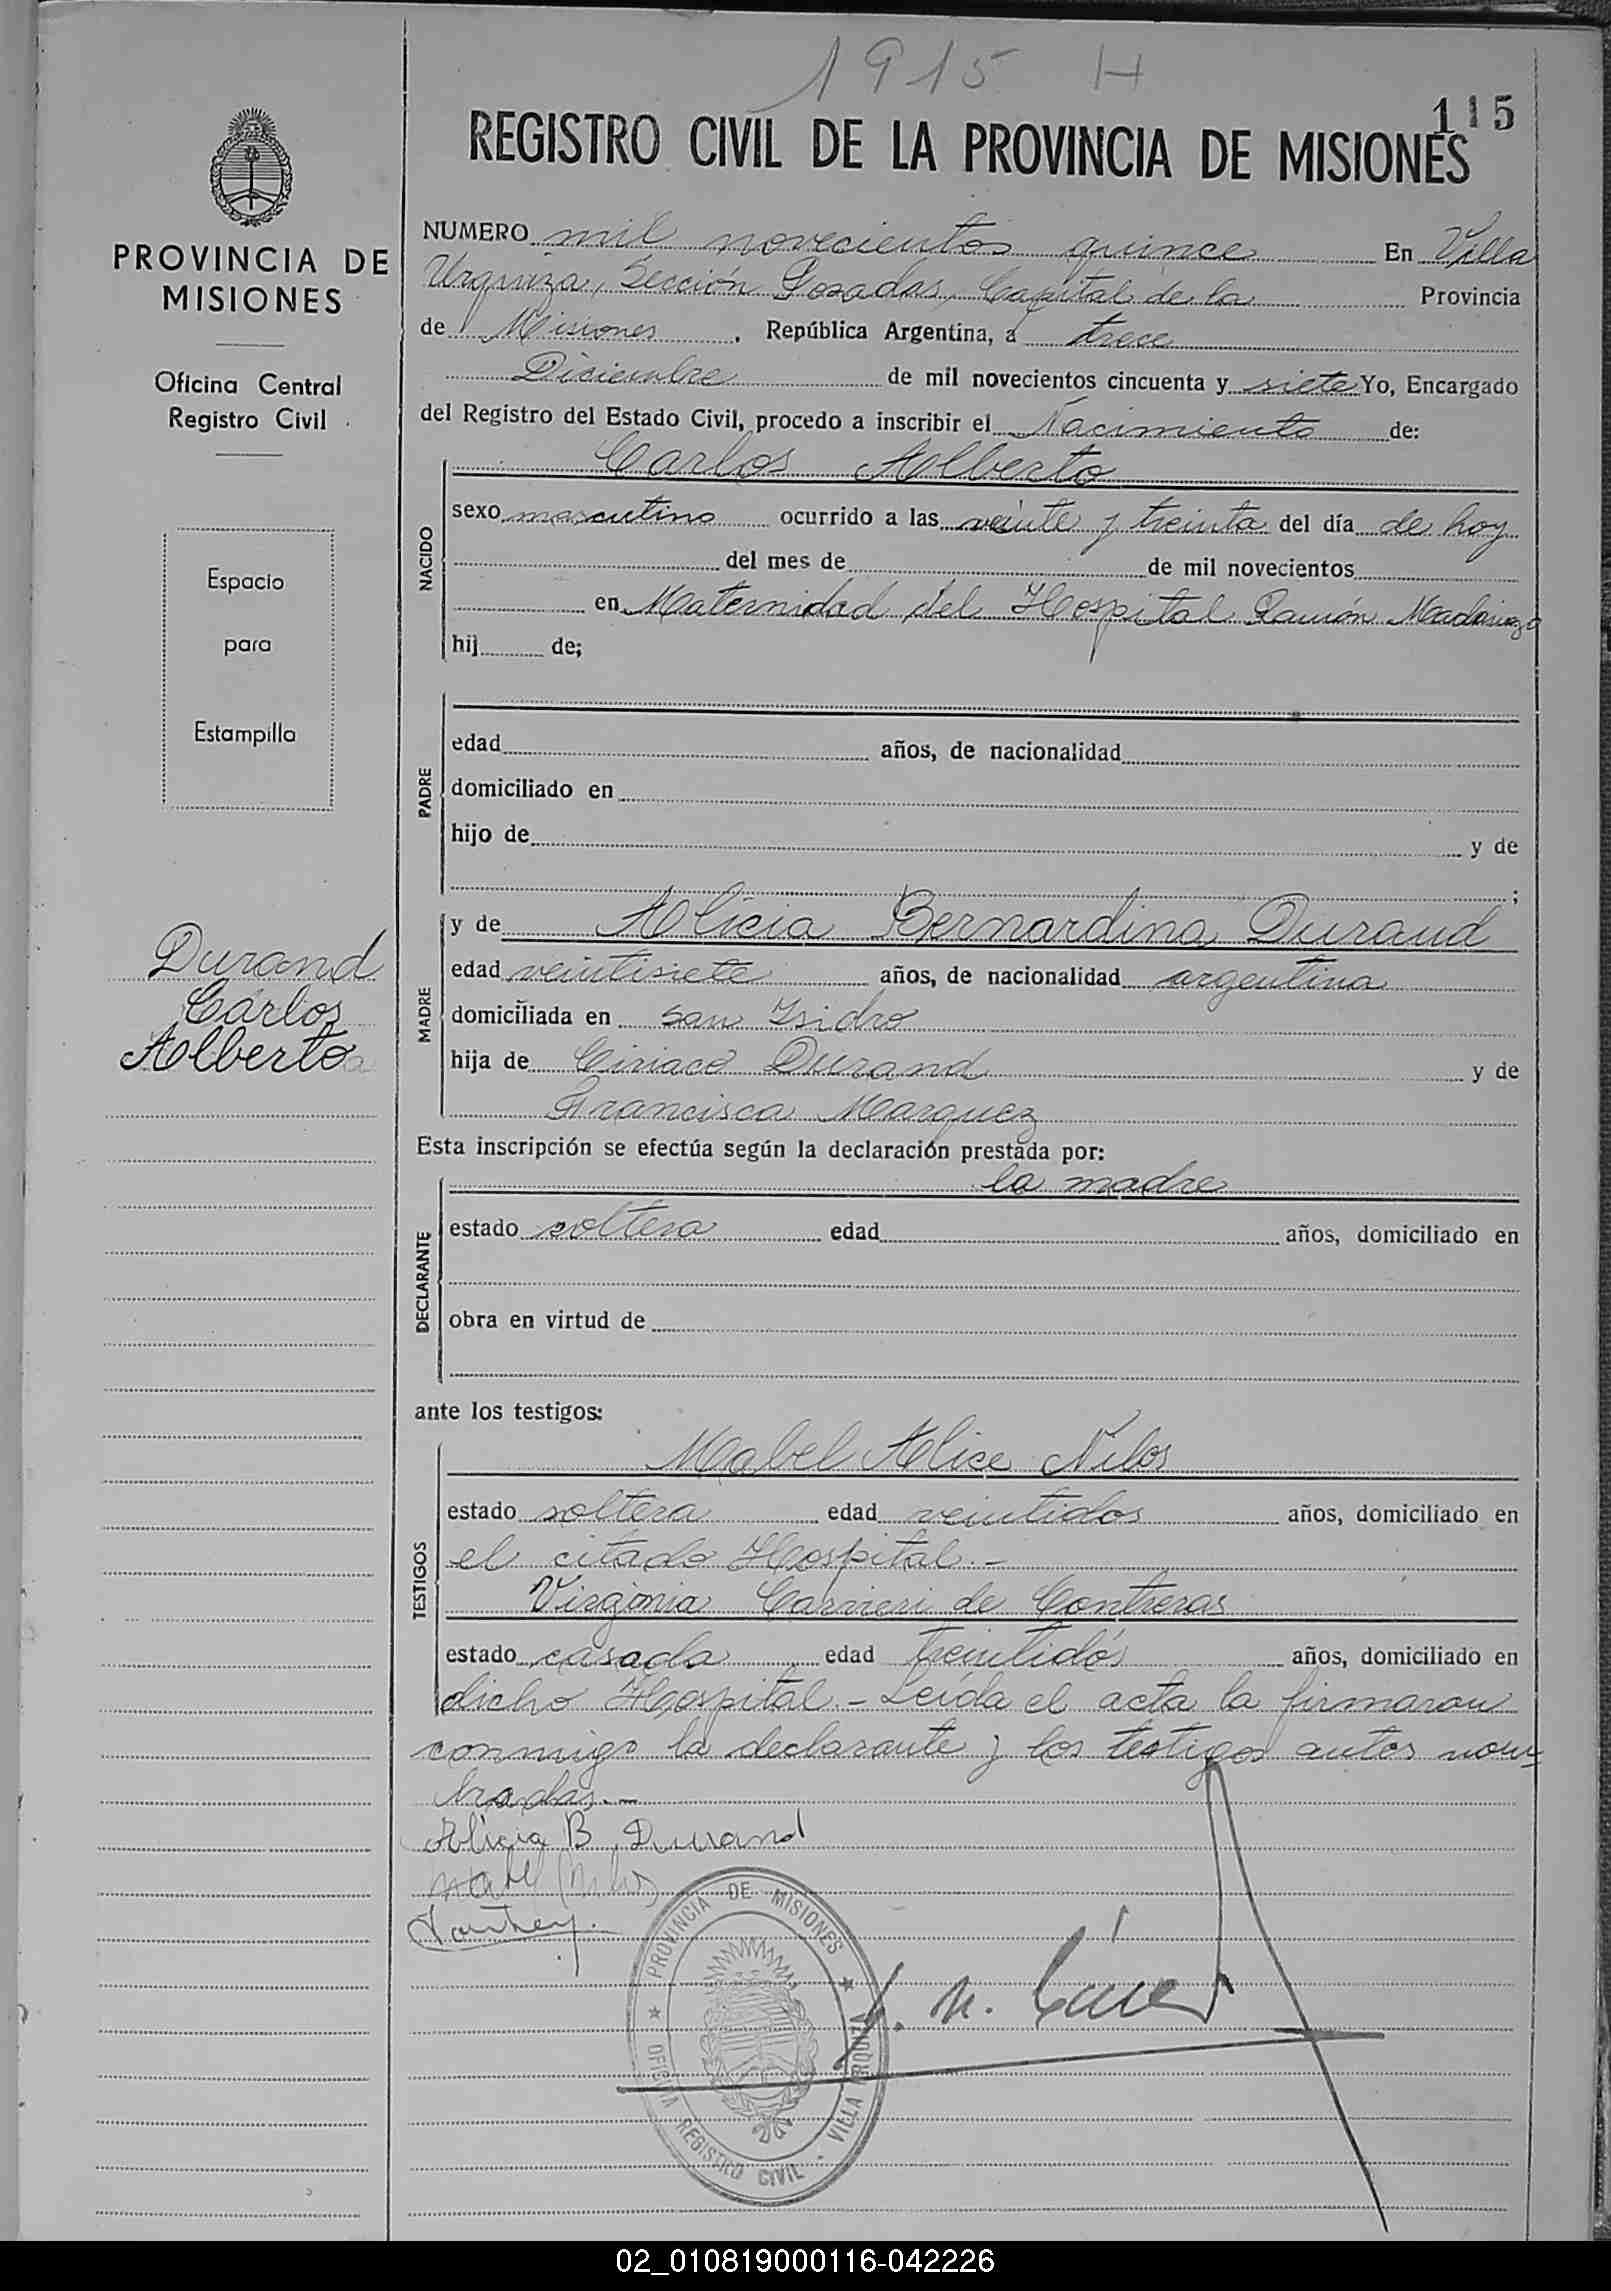 1915 H
115
REGISTRO CIVIL DE LA PROVINCIA DE MISIONES
PROVINCIA DE
MISIONES
Oficina Central
Registro Civil
Espacio
para
Estampilla
Durand
Carlos
Alberto
NUMERO mil novecientos quince En Villa
Urquiza, Sección Posadas, Capital de la Provincia
de Misiones, República Argentina, a trece
Diciembre de mil novecientos cincuenta y siete Yo, Encargado
del Registro del Estado Civil, procedo a inscribir el Nacimiento de:
Carlos Alberto
NACIDO
sexo masculino ocurrido a las veinte y treinta del día de hoy
del mes de de mil novecientos
en Maternidad del Hospital Ramón Madariaga
hij de;
PADRE
edad años, de nacionalidad
domiciliado en
hijo de y de
;
MADRE
y de Alicia Bernardina Durand
edad veintisiete años, de nacionalidad argentina
domiciliada en San Isidro
hija de Ciriaco Durand y de
Francisca Marquez
Esta inscripción se efectúa según la declaración prestada por:
la madre
DECLARANTE
estado soltera edad años, domiciliado en
obra en virtud de
ante los testigos:
TESTIGOS
Mabel Alice Nilos
estado soltera edad veintidos años, domiciliado en
el citado Hospital.-
Virginia Carrieri de Contreras
estado casada edad treintidós años, domiciliado en
dicho Hospital.- Leída el acta la firmaron
conmigo la declarante y los testigos antes nom-
bradas.-
Alicia B. Durand
PROVINCIA DE MISIONES
OFICINA REGISTRO CIVIL - VILLA URQUIZA
02_010819000116-042226